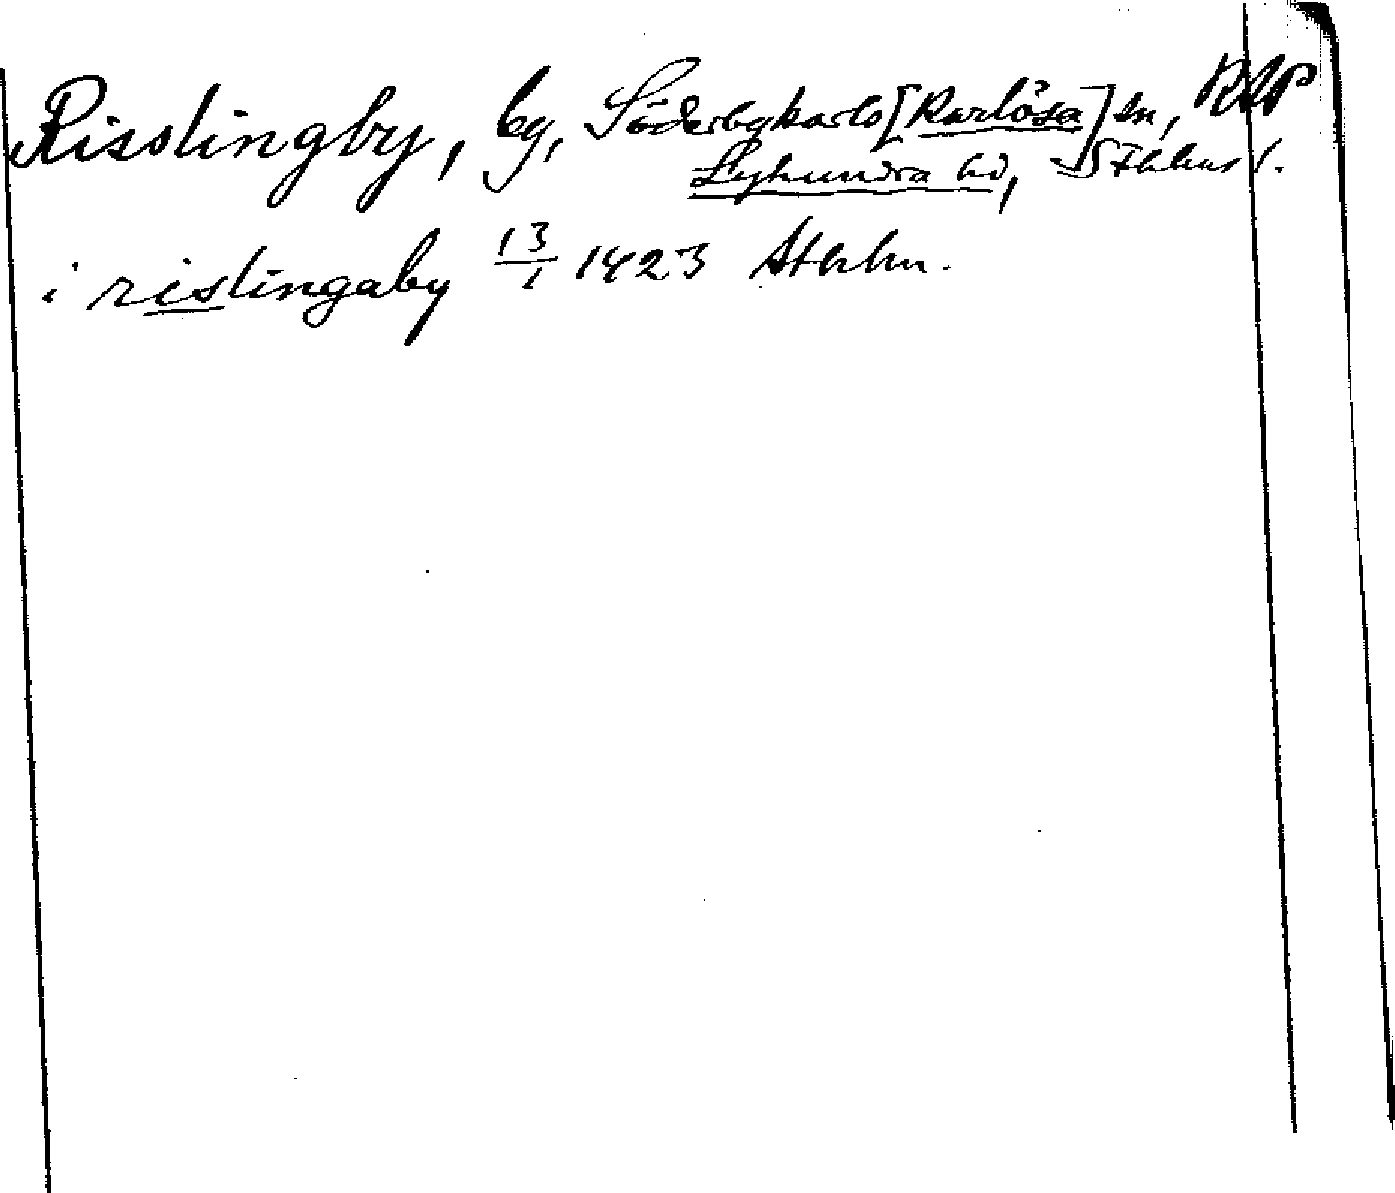 Risslingby, by, Söderbykarls [Karlösa] sn, RAP
Lyhundra hd, Sthlms l.
i rislingaby 13/1 1423 Sthlm.